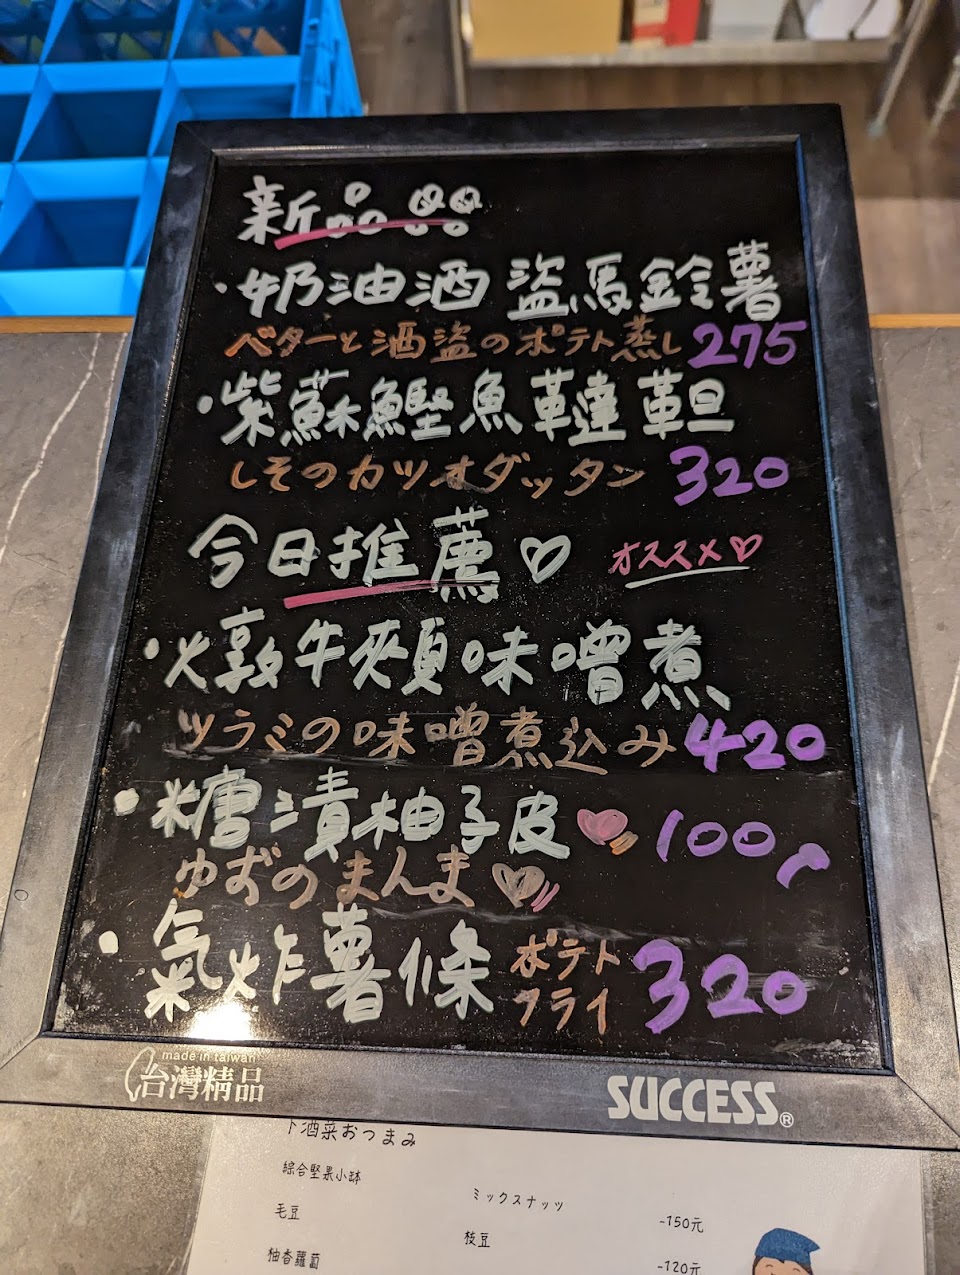 新品 品品
・奶油酒盜馬鈴薯
ベターと酒盜のポテト蒸し 275
・紫蘇鰹魚韃靼
しそのカツオダッタン 320
今日推薦♡ オススメ♡
・火敦牛頰味噌煮
ツラミの味噌煮込み 420
・糖漬柚子皮 100
ゆずのまんま
・氣炸薯條 ポテトフライ 320
made in taiwan
台灣精品
SUCCESS®
下酒菜おつまみ
綜合堅果小缽 ミックスナッツ -150元
毛豆 枝豆 -120元
柚香蘿蔔